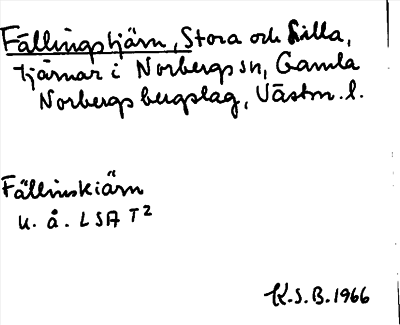 Fällingstjärn, Stora och Lilla,
tjärnar i Norbergs sn, Gamla
Norbergs bergslag, Västm. l.
Fällinskiärn
u. å. LSA T2
K.S.B. 1966